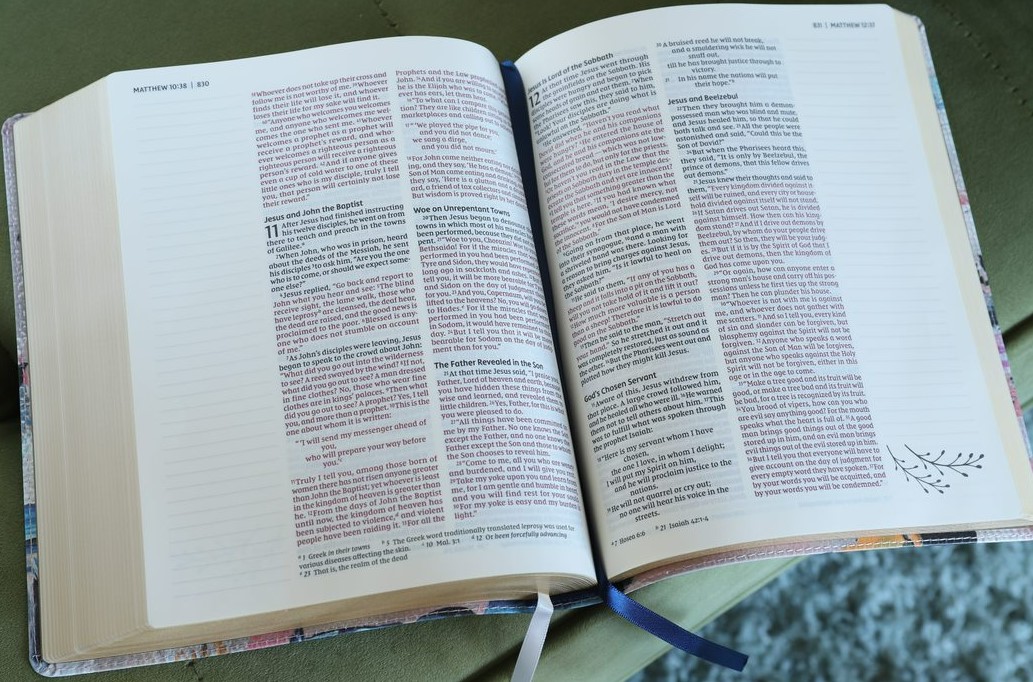 MATTHEW 10:38 | 830
³⁸Whoever does not take up their cross and
follow me is not worthy of me. ³⁹Whoever
finds their life will lose it, and whoever
loses their life for my sake will find it.
⁴⁰"Anyone who welcomes you welcomes
me, and anyone who welcomes me wel-
comes the one who sent me. ⁴¹Whoever
welcomes a prophet as a prophet will
receive a prophet's reward, and who-
ever welcomes a righteous person as a
righteous person will receive a righteous
person's reward. ⁴²And if anyone gives
even a cup of cold water to one of these
little ones who is my disciple, truly I tell
you, that person will certainly not lose
their reward."
Jesus and John the Baptist
11 After Jesus had finished instructing
his twelve disciples, he went on from
there to teach and preach in the towns
of Galilee.ᵃ
²When John, who was in prison, heard
about the deeds of the Messiah, he sent
his disciples ³to ask him, "Are you the one
who is to come, or should we expect some-
one else?"
⁴Jesus replied, "Go back and report to
John what you hear and see: ⁵The blind
receive sight, the lame walk, those who
have leprosyᵇ are cleansed, the deaf hear,
the dead are raised, and the good news is
proclaimed to the poor. ⁶Blessed is any-
one who does not stumble on account
of me."
⁷As John's disciples were leaving, Jesus
began to speak to the crowd about John:
"What did you go out into the wilderness
to see? A reed swayed by the wind? ⁸If not,
what did you go out to see? A man dressed
in fine clothes? No, those who wear fine
clothes are in kings' palaces. ⁹Then what
did you go out to see? A prophet? Yes, I tell
you, and more than a prophet. ¹⁰This is the
one about whom it is written:
"'I will send my messenger ahead of
you,
who will prepare your way before
you.'ᶜ
¹¹Truly I tell you, among those born of
women there has not risen anyone greater
than John the Baptist; yet whoever is least
in the kingdom of heaven is greater than
he. ¹²From the days of John the Baptist
until now, the kingdom of heaven has
been subjected to violence,ᵈ and violent
people have been raiding it. ¹³For all the
Prophets and the Law
John. ¹⁴And if you are
he is the Elijah who was to
ever has ears, let them hear.
¹⁶"To what can I compare
tion? They are like children
marketplaces and calling out
¹⁷"'We played the pipe for you,
and you did not dance;
we sang a dirge,
and you did not mourn.'
¹⁸For John came neither eating
ing, and they say, 'He has a
Son of Man came eating and
they say, 'Here is a glutton and a
ard, a friend of tax collectors and
But wisdom is proved right by her
Woe on Unrepentant Towns
²⁰Then Jesus began to
towns in which most of his
been performed, because they did
pent. ²¹"Woe to you, Chorazin!
Bethsaida! For if the miracles
performed in you had been
Tyre and Sidon, they would have
long ago in sackcloth and ashes.
tell you, it will be more bearable
and Sidon on the day of judgment
for you. ²³And you, Capernaum, will
lifted to the heavens? No, you will go
to Hades.ᵉ For if the miracles
performed in you had been
in Sodom, it would have remained
day. ²⁴But I tell you that it will be more
bearable for Sodom on the day of judg-
ment than for you."
The Father Revealed in the Son
²⁵At that time Jesus said, "I praise you,
Father, Lord of heaven and earth, because
you have hidden these things from the
wise and learned, and revealed them to
little children. ²⁶Yes, Father, for this is what
you were pleased to do.
²⁷"All things have been committed to
me by my Father. No one knows the Son
except the Father, and no one knows the
Father except the Son and those to whom
the Son chooses to reveal him.
²⁸"Come to me, all you who are weary
and burdened, and I will give you rest.
²⁹Take my yoke upon you and learn from
me, for I am gentle and humble in heart,
and you will find rest for your souls.
³⁰For my yoke is easy and my burden is
light."
ᵃ 1 Greek in their towns ᵇ 5 The Greek word traditionally translated leprosy was used for
various diseases affecting the skin. ᶜ 10 Mal. 3:1 ᵈ 12 Or been forcefully advancing
ᵉ 23 That is, the realm of the dead
831 | MATTHEW 12:37
Lord of the Sabbath
12 At that time Jesus went through
the grainfields on the Sabbath. His
disciples were hungry and began to pick
some heads of grain and eat them. ²When
the Pharisees saw this, they said to him,
doing what is
unlawful on the Sabbath."
"Haven't you read what
he and his companions
He entered the house of
on Sabbath duty in the
the Sabbath and yet are innocent?
⁶I tell you that something greater than the
temple is here. ⁷If you had known what
these words mean, 'I desire mercy, not
sacrifice,'ᵃ you would not have condemned
the innocent. ⁸For the Son of Man is Lord
of the Sabbath."
⁹Going on from that place, he went
into their synagogue, ¹⁰and a man with
a shriveled hand was there. Looking for
a reason to bring charges against Jesus,
they asked him, "Is it lawful to heal on
the Sabbath?"
¹¹He said to them, "If any of you has a
sheep and it falls into a pit on the Sabbath,
will you not take hold of it and lift it out?
¹²How much more valuable is a person
than a sheep! Therefore it is lawful to do
good on the Sabbath."
¹³Then he said to the man, "Stretch out
your hand." So he stretched it out and it
was completely restored, just as sound as
the other. ¹⁴But the Pharisees went out and
plotted how they might kill Jesus.
God's Chosen Servant
¹⁵Aware of this, Jesus withdrew from
that place. A large crowd followed him,
and he healed all who were ill. ¹⁶He warned
them not to tell others about him. ¹⁷This
was to fulfill what was spoken through
the prophet Isaiah:
¹⁸"Here is my servant whom I have
chosen,
the one I love, in whom I delight;
I will put my Spirit on him,
and he will proclaim justice to the
nations.
¹⁹He will not quarrel or cry out;
no one will hear his voice in the
streets.
²⁰A bruised reed he will not break,
and a smoldering wick he will not
snuff out,
till he has brought justice through to
victory.
²¹ In his name the nations will put
their hope."ᵇ
Jesus and Beelzebul
²²Then they brought him a demon-
possessed man who was blind and mute,
and Jesus healed him, so that he could
both talk and see. ²³All the people were
astonished and said, "Could this be the
Son of David?"
²⁴But when the Pharisees heard this,
they said, "It is only by Beelzebul, the
prince of demons, that this fellow drives
out demons."
²⁵Jesus knew their thoughts and said to
them, "Every kingdom divided against it-
self will be ruined, and every city or house-
hold divided against itself will not stand.
²⁶If Satan drives out Satan, he is divided
against himself. How then can his king-
dom stand? ²⁷And if I drive out demons by
Beelzebul, by whom do your people drive
them out? So then, they will be your judg-
es. ²⁸But if it is by the Spirit of God that I
drive out demons, then the kingdom of
God has come upon you.
²⁹"Or again, how can anyone enter a
strong man's house and carry off his pos-
sessions unless he first ties up the strong
man? Then he can plunder his house.
³⁰"Whoever is not with me is against
me, and whoever does not gather with
me scatters. ³¹And so I tell you, every kind
of sin and slander can be forgiven, but
blasphemy against the Spirit will not be
forgiven. ³²Anyone who speaks a word
against the Son of Man will be forgiven,
but anyone who speaks against the Holy
Spirit will not be forgiven, either in this
age or in the age to come.
³³"Make a tree good and its fruit will be
good, or make a tree bad and its fruit will
be bad, for a tree is recognized by its fruit.
³⁴You brood of vipers, how can you who
are evil say anything good? For the mouth
speaks what the heart is full of. ³⁵A good
man brings good things out of the good
stored up in him, and an evil man brings
evil things out of the evil stored up in him.
³⁶But I tell you that everyone will have to
give account on the day of judgment for
every empty word they have spoken. ³⁷For
by your words you will be acquitted, and
by your words you will be condemned."
ᵃ 7 Hosea 6:6 ᵇ 21 Isaiah 42:1-4